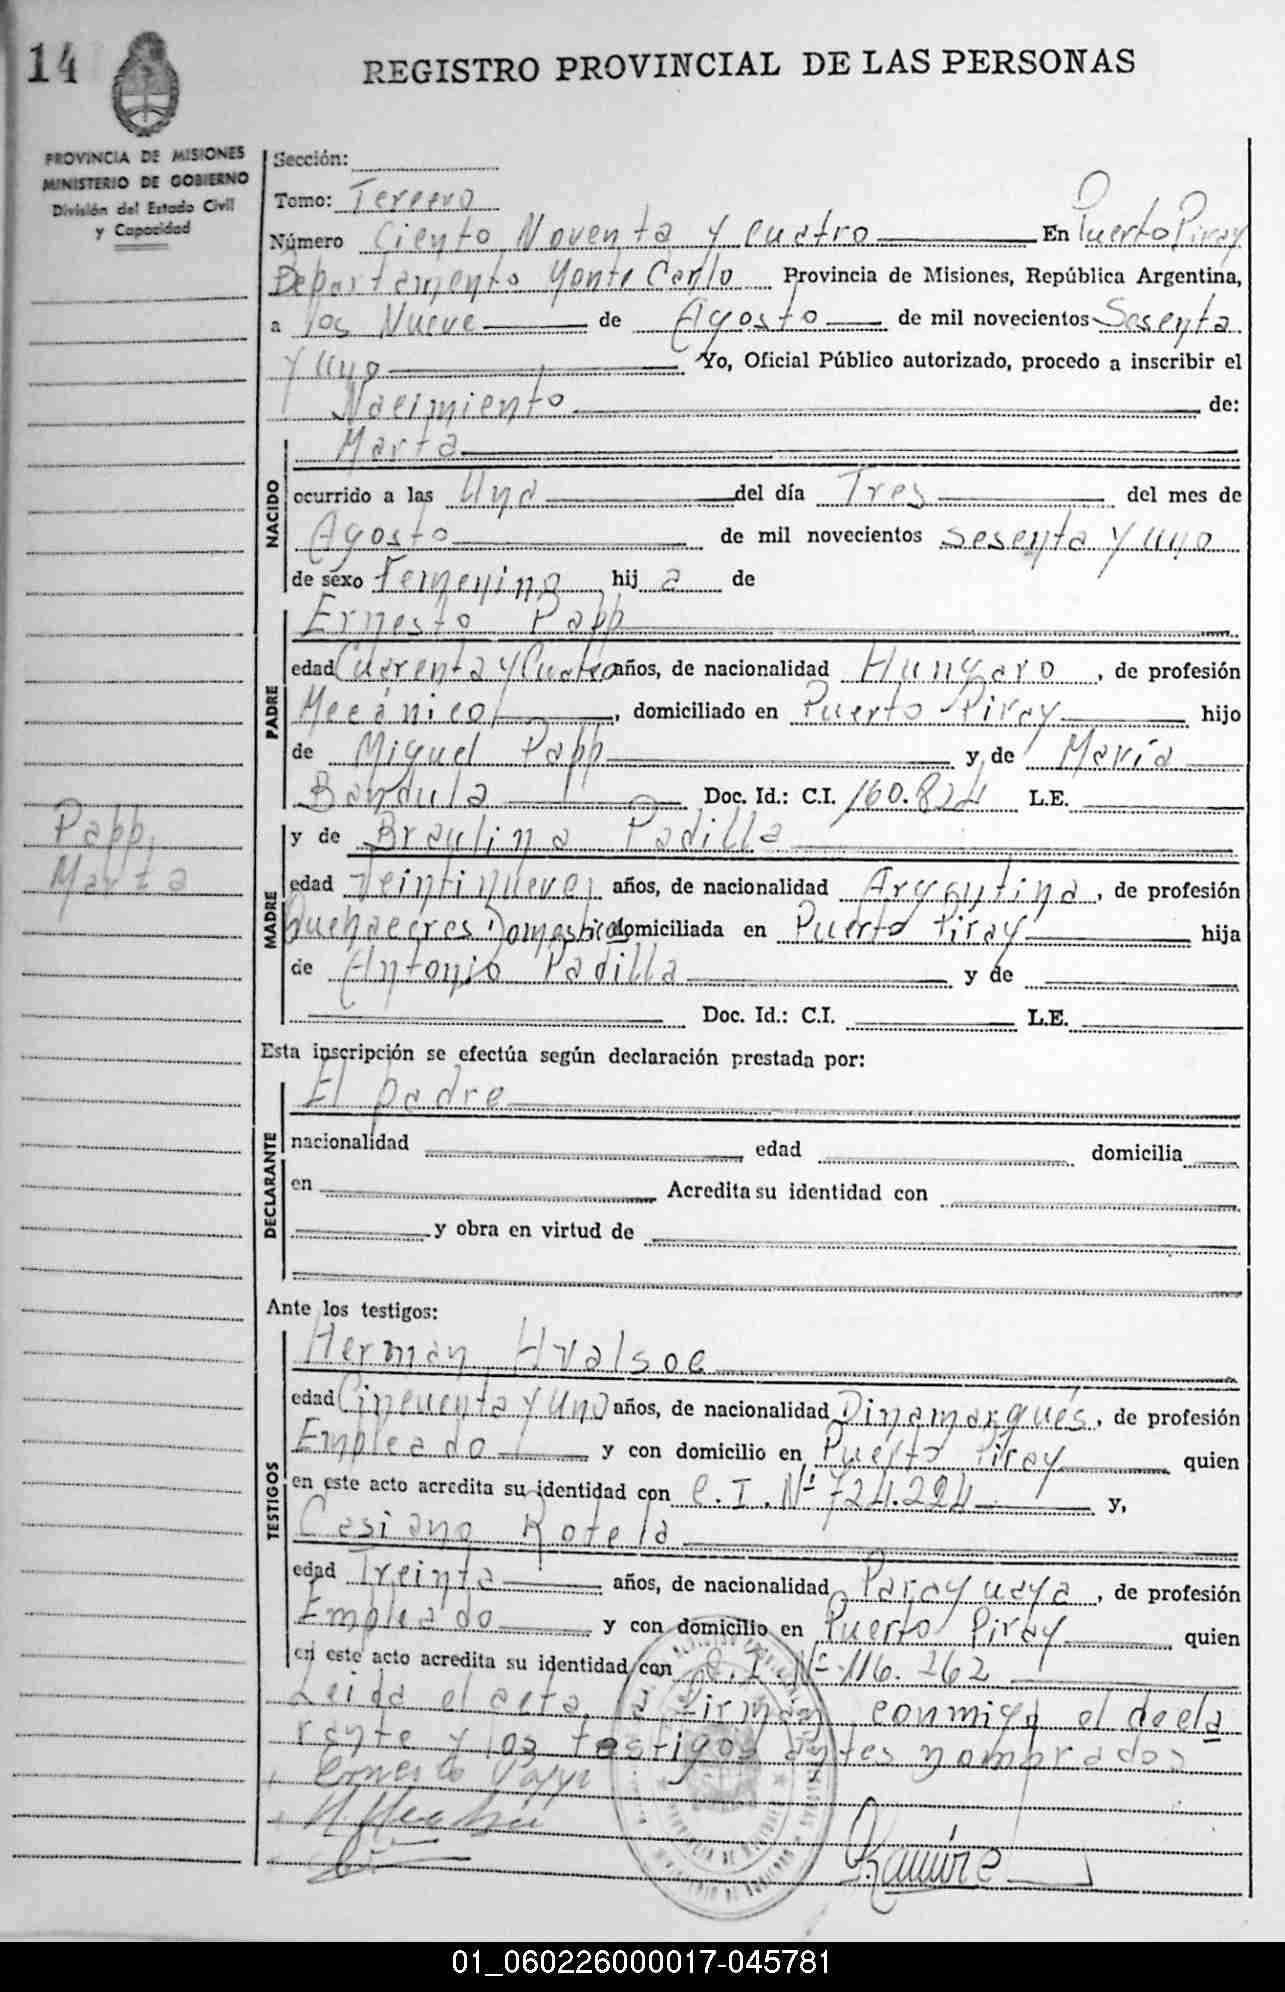 14
REGISTRO PROVINCIAL DE LAS PERSONAS
PROVINCIA DE MISIONES
MINISTERIO DE GOBIERNO
División del Estado Civil
y Capacidad
Sección:
Tomo: Tercero
Número Ciento Noventa y Cuatro En Puerto Piray
Departamento Monte Carlo Provincia de Misiones, República Argentina,
a los Nueve de Agosto de mil novecientos Sesenta
y Uno Yo, Oficial Público autorizado, procedo a inscribir el
Nacimiento de:
Marta
NACIDO
ocurrido a las Una del día Tres del mes de
Agosto de mil novecientos Sesenta y uno
de sexo Femenino hija de
Ernesto Papp
PADRE
edad Cuarenta y Cuatro años, de nacionalidad Hungaro, de profesión
Mecánico, domiciliado en Puerto Piray hijo
de Miguel Papp y de María
Bandula Doc. Id.: C.I. 160.824 L.E.
Papp,
Marta
MADRE
y de Braulina Padilla
edad Veintinueve años, de nacionalidad Argentina, de profesión
Quehaceres Domesticos domiciliada en Puerto Piray hija
de Antonio Padilla y de
Doc. Id.: C.I. L.E.
Esta inscripción se efectúa según declaración prestada por:
El padre
DECLARANTE
nacionalidad edad domicilia
en Acredita su identidad con
y obra en virtud de
Ante los testigos:
Herman Hvalsoe
TESTIGOS
edad Cincuenta y Uno años, de nacionalidad Dinamarqués, de profesión
Empleado y con domicilio en Puerto Piray quien
en este acto acredita su identidad con C.I. Nº 724.224 y,
Casiano Rotela
edad Treinta años, de nacionalidad Paraguaya, de profesión
Empleado y con domicilio en Puerto Piray quien
en este acto acredita su identidad con C.I. Nº 116.262
Leida el acta, la firman conmigo el decla
rante y los testigos antes nombrados
Ernesto Papp
01_060226000017-045781